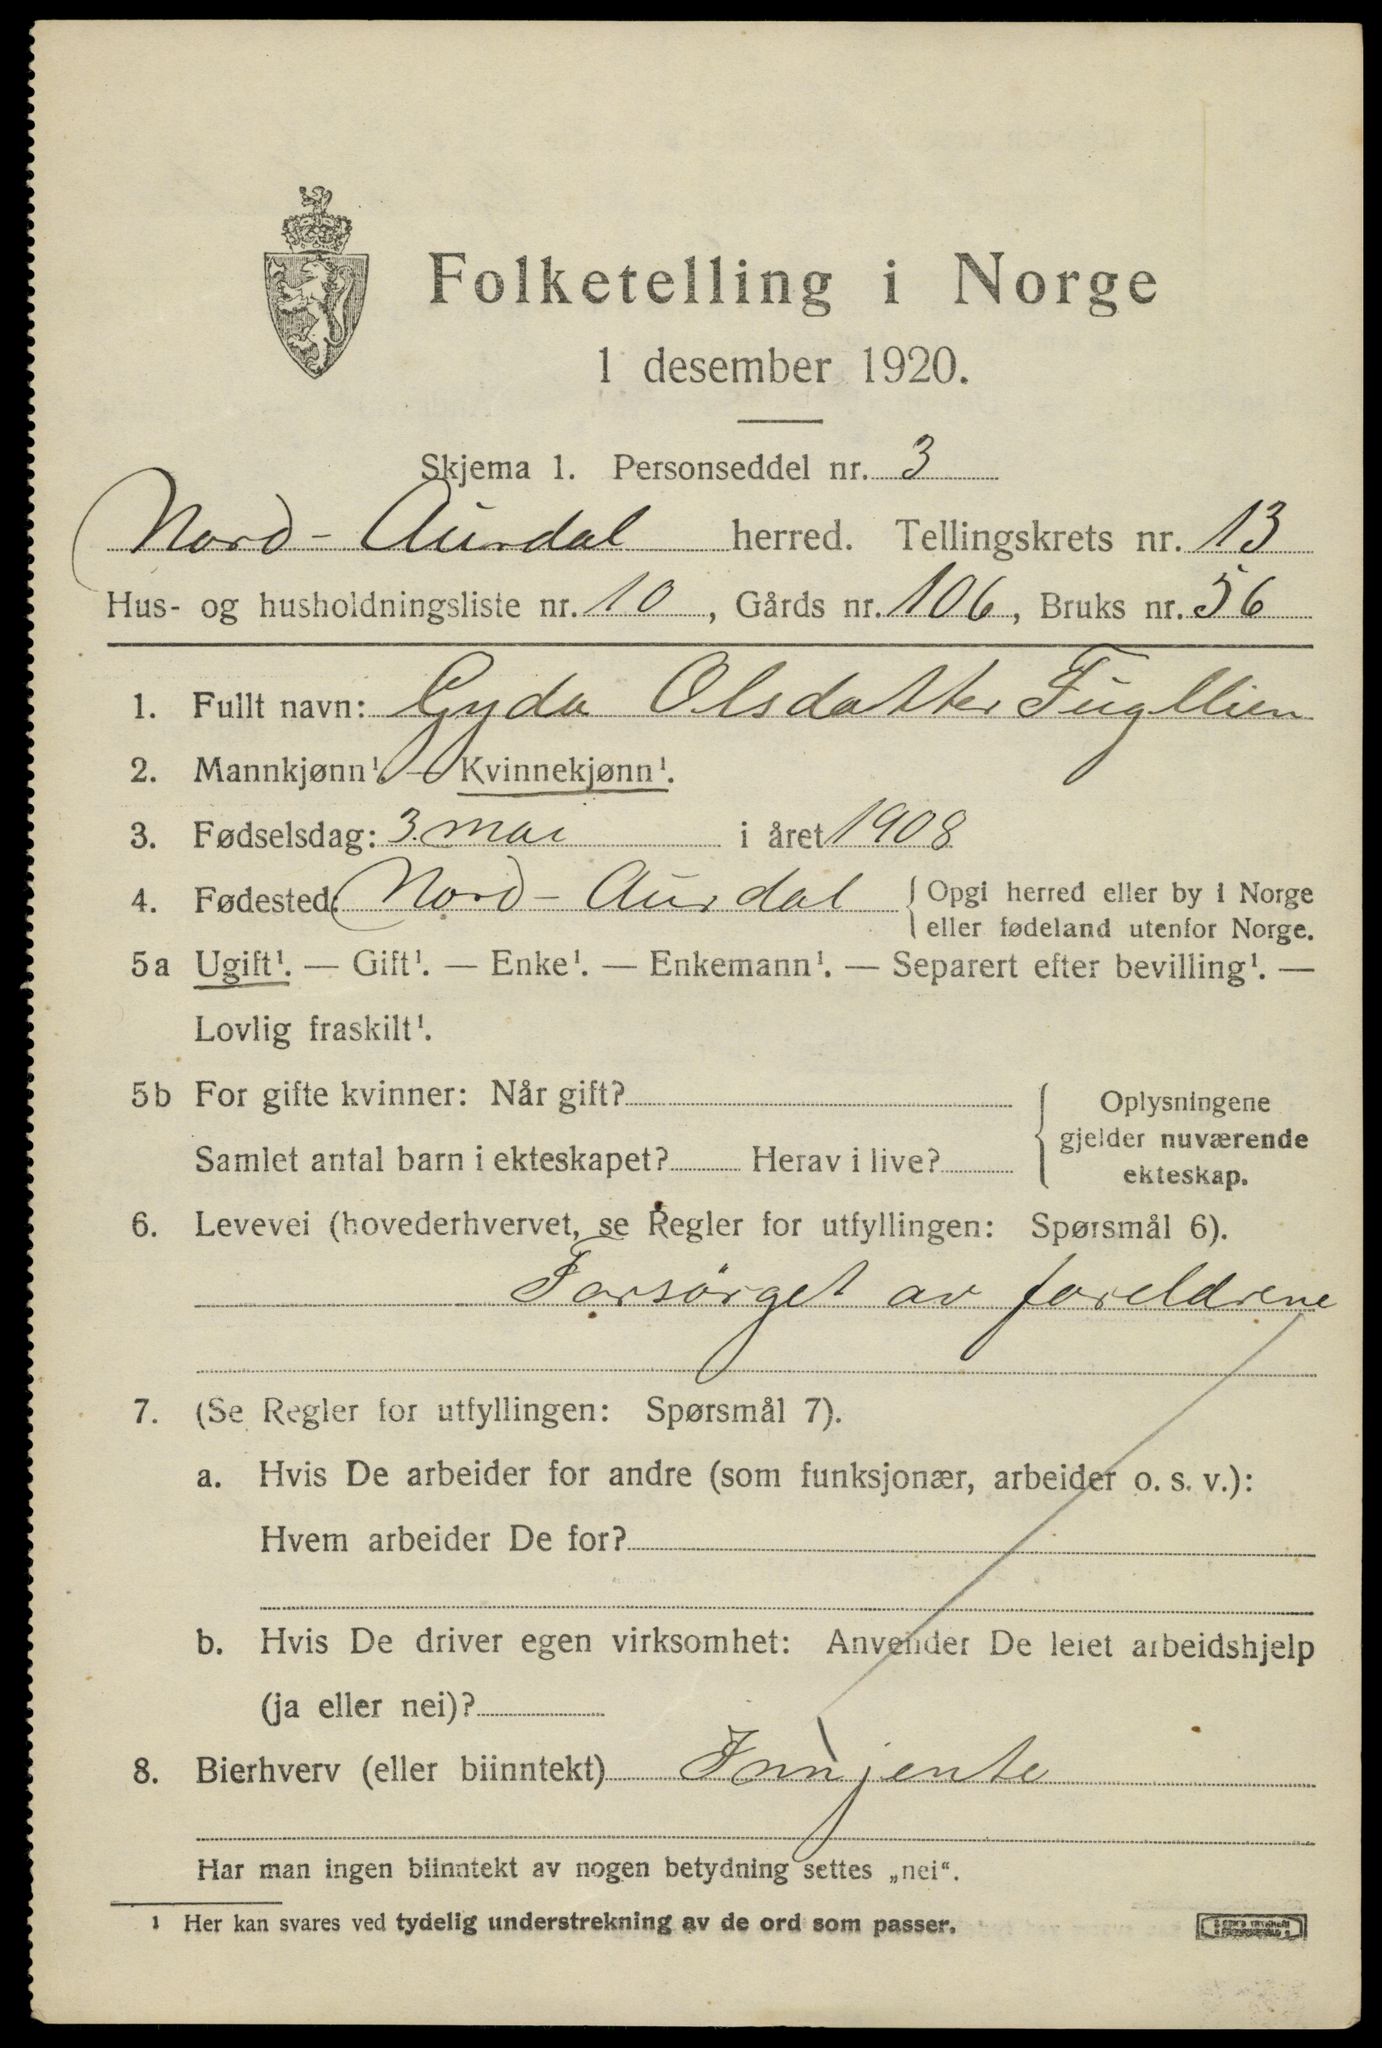 Folketelling i Norge
1 desember 1920.
Skjema 1. Personseddel nr. 3
Nord-Aurdal herred. Tellingskrets nr. 13
Hus- og husholdningsliste nr. 10, Gårds nr. 106, Bruks nr. 56
1. Fullt navn: Gyda Olsdatter Fugllien
2. Mannkjønn¹. — Kvinnekjønn¹.
3. Fødselsdag: 3. mai i året 1908
4. Fødested: Nord-Aurdal { Opgi herred eller by i Norge
eller fødeland utenfor Norge.
5a Ugift¹. — Gift¹. — Enke¹. — Enkemann¹. — Separert efter bevilling¹. —
Lovlig fraskilt¹.
5b For gifte kvinner: Når gift?
Samlet antal barn i ekteskapet? Herav i live?
Oplysningene
gjelder nuværende
ekteskap.
6. Levevei (hovederhvervet, se Regler for utfyllingen: Spørsmål 6).
Forsörget av foreldrene
7. (Se Regler for utfyllingen: Spørsmål 7).
a. Hvis De arbeider for andre (som funksjonær, arbeider o. s. v.):
Hvem arbeider De for?
b. Hvis De driver egen virksomhet: Anvender De leiet arbeidshjelp
(ja eller nei)?
8. Bierhverv (eller biinntekt) Innjente
Har man ingen biinntekt av nogen betydning settes „nei“.
¹ Her kan svares ved tydelig understrekning av de ord som passer.